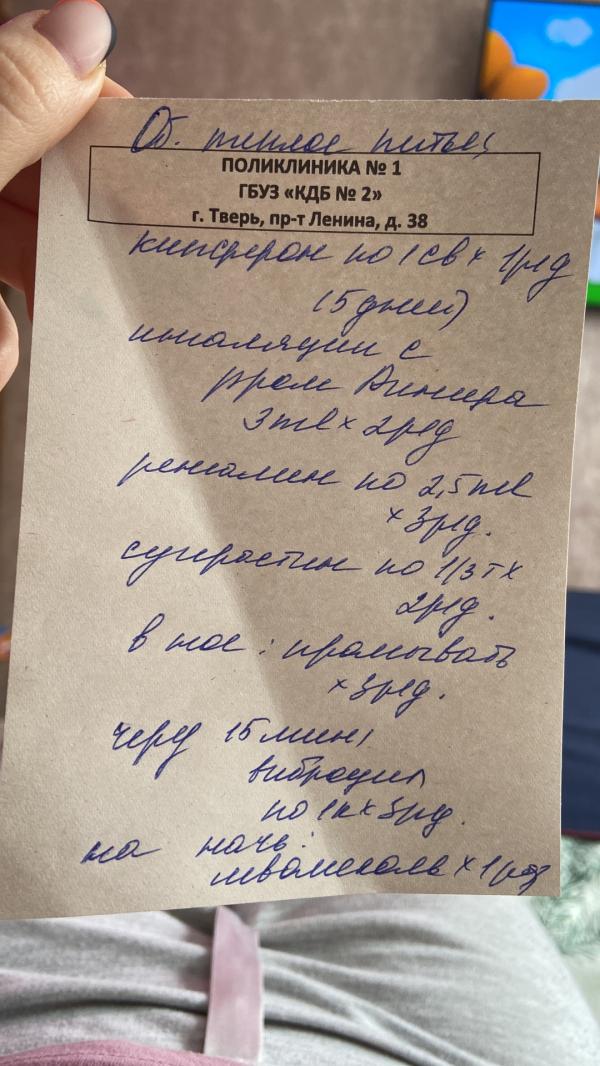 Об. теплое питье
ПОЛИКЛИНИКА № 1
ГБУЗ «КДБ № 2»
г. Тверь, пр-т Ленина, д. 38
кипферон по 1 св х 1рд
(5 дней)
ингаляции с
рром
3ml х 2рд
ренгалин по 2,5 ml
х 3рд.
супрастин по 1/3 т х
2рд.
в нос: промывать
х 3рд.
через 15 мин
виброцил
по 1к х 3рд.
на ночь:
х 1раз